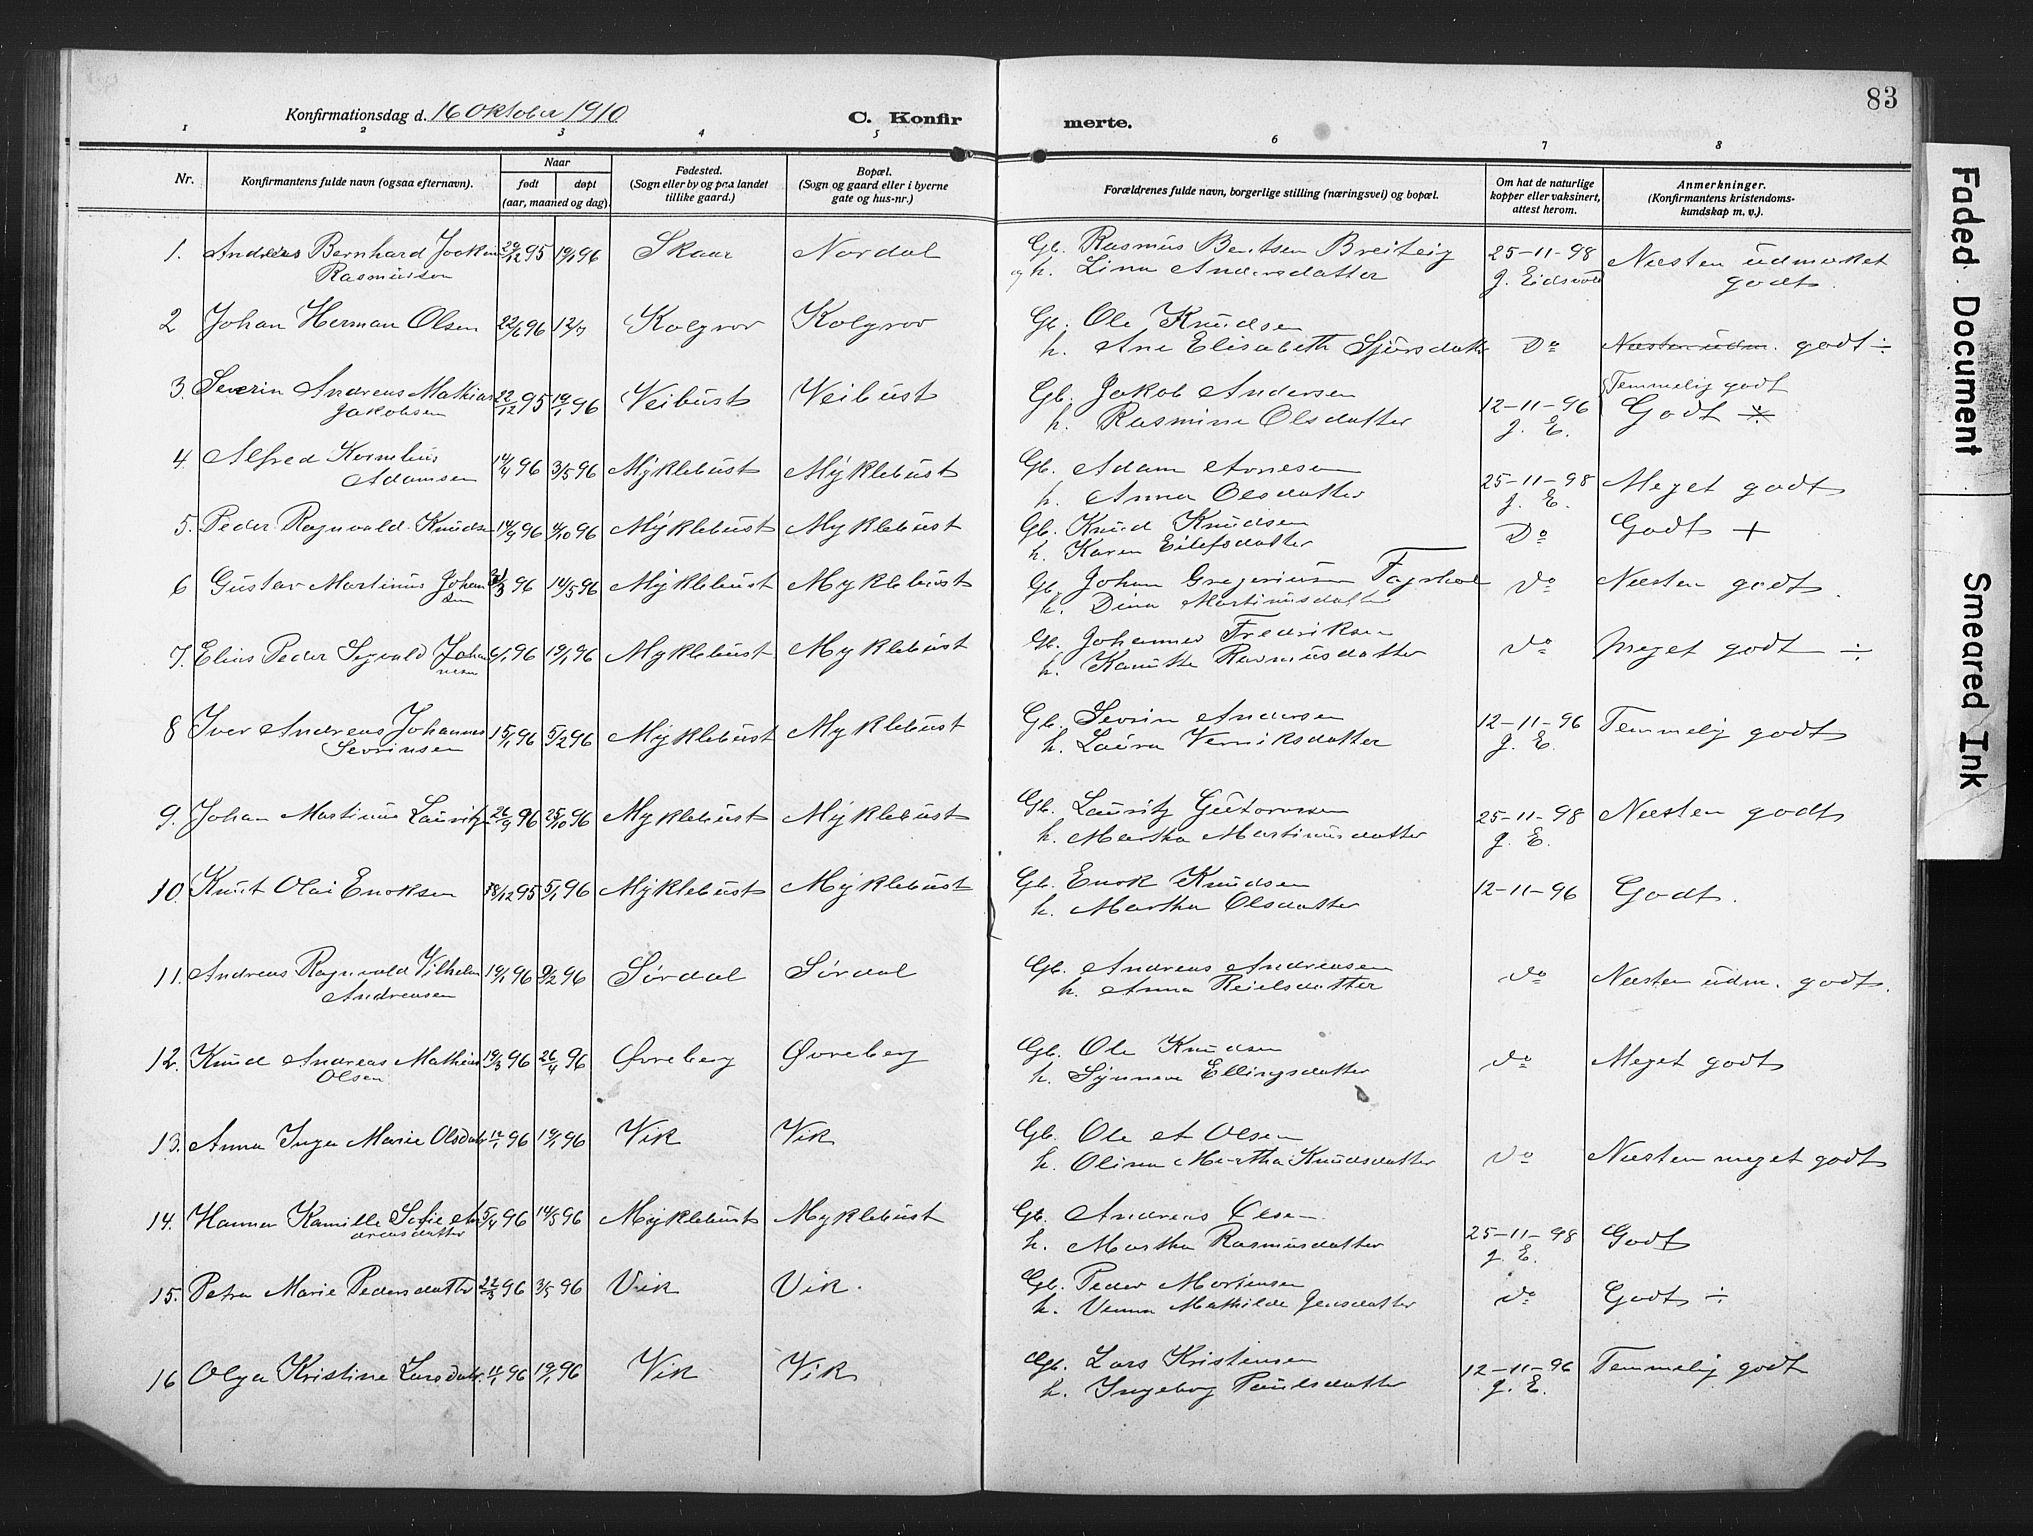 83
Konfirmationsdag d. 16 Oktober 1910
C. Konfirmerte.
1 2 3 4 5 6 7 8
Nr.
Konfirmantens fulde navn (ogsaa efternavn).
Naar
født døpt
(aar, maaned og dag).
Fødested.
(Sogn eller by og paa landet
tillike gaard.)
Bopæl.
(Sogn og gaard eller i byerne
gate og hus-nr.)
Forældrenes fulde navn, borgerlige stilling (næringsvei) og bopæl.
Om hat de naturlige
kopper eller vaksinert,
attest herom.
Anmerkninger.
(Konfirmantens kristendoms-
kundskap m. v.).
1. Andreas Bernhard Joakim 29/12 95 19/1 96 Skaar Nordal Gb. Rasmus Bentsen Breiteig 25-11-98 Næsten udmerket
Rasmussen og h. Lina Andersdatter J. Eidsvold godt.
2 Johan Herman Olsen 22/6 96 12/7 Kolgrov Kolgrov Gb. Ole Knudsen
h. Ane Elisabeth Sjursdatter Do Næsten udm. godt ÷
3. Severin Andreas Mathias 22/12 95 19/1 96 Veibust Veibust Gb. Jakob Andersen 12-11-96 Temmelig godt
Jakobsen h. Rasmine Olsdatter J. E. Godt ÷
4. Alfred Kornelius 14/4 96 3/5 96 Myklebust Myklebust Gb. Adam Arnesen 25-11-98 Meget godt
Adamsen h. Anna Olsdatter J. E.
5. Peder Ragnvald Knudsen 14/9 96 4/10 96 Myklebust Myklebust Gb. Knud Knudsen Do Godt +
h. Karen Eilefsdatter
6 Gustav Martinus Johan 96 14/5 96 Myklebust Myklebust Gb. Johan Gregoriusen Do Næsten godt.
sen h. Dina Martinusdatter
7. Elias Peder Sigvald Johan 6/1 96 19/1 96 Myklebust Myklebust Gb. Johannes Fredriksen Do Meget godt ÷
nesen h. Kanutte Rasmusdatter
8 Iver Andreas Johannes 15/1 96 5/2 96 Myklebust Myklebust Gb. Sevrin Andersen 12-11-96 Temmelig godt
Sevrinsen h. Laura Verniksdatter J. E.
9. Johan Martinus Lauritz 26/9 96 25/10 96 Myklebust Myklebust Gb. Lauritz Gutormsen 25-11-98 Næsten godt
h. Martha Martinusdatter J. E.
10 Knut Olai Enoksen 18/12 95 5/1 96 Myklebust Myklebust Gb. Enok Knudsen 12-11-96 Godt.
h. Martha Olsdatter
11. Andreas Ragnvald Vilhelm 19/1 96 9/2 96 Sørdal Sørdal Gb. Andreas Andreasen Do Næsten udm. godt.
Andreasen h. Anna Reielsdatter
12. Knud Andreas Mathias 19/3 96 26/4 96 Øvreberg Øvreberg Gb. Ole Knudsen Do Meget godt
Olsen h. Synneve Ellingsdatter
13. Anna Inga Marie Olsdatr 12/1 96 19/1 96 Vik Vik Gb. Ole Olsen Do Næsten meget godt
h. Olina Martha Knudsdatter
14. Hanna Kamille Sofie An 5/4 96 14/5 96 Myklebust Myklebust Gb. Andreas Olsen 25-11-98 Godt
dreasdatter h. Martha Rasmusdatter J. E.
15. Petra Marie Pedersdatter 22/3 96 3/5 96 Vik Vik. Gb. Peder Mortensen Do Godt ÷
h. Mathilde Jensdatter
16 Olga Kristine Larsdatr. 11/1 96 19/1 96 Vik Vik Gb. Lars Kristensen 12-11-96 Temmelig godt
h. Ingeborg Paulsdatter J. E.
Faded Document
Smeared Ink